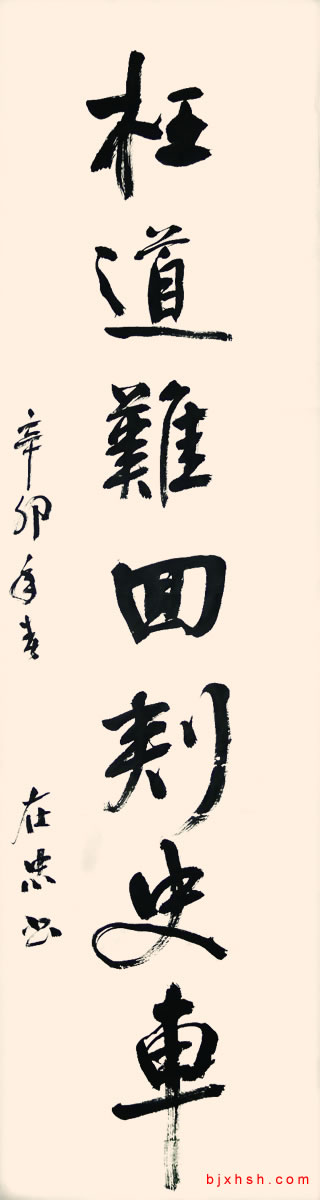 枉道難回刺史車
辛卯年春 在忠书
bjxhsh.com